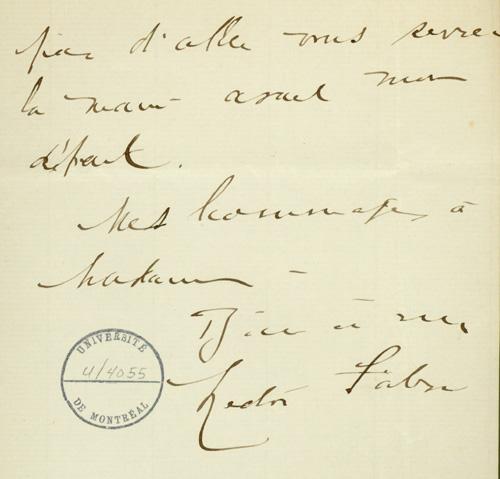 pas d'aller vous serrer
la main avant mon
départ.
Mes hommages à
Madame -
Bien à vous
Hector Fabre
UNIVERSITÉ
U/4055
DE MONTRÉAL